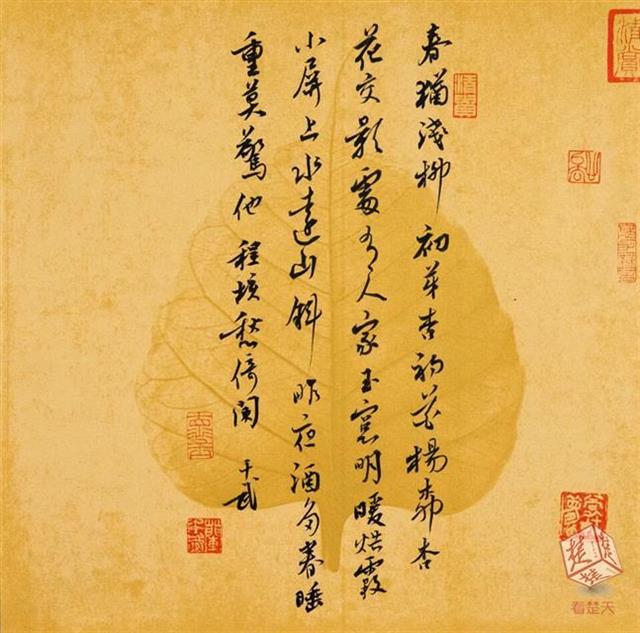 春猶淺柳初芽杏初花楊柳杏
花交影處有人家玉窻明暖烘霞
小屏上水遠山斜昨夜酒多春睡
重莫驚他程垓愁倚阑
看楚天